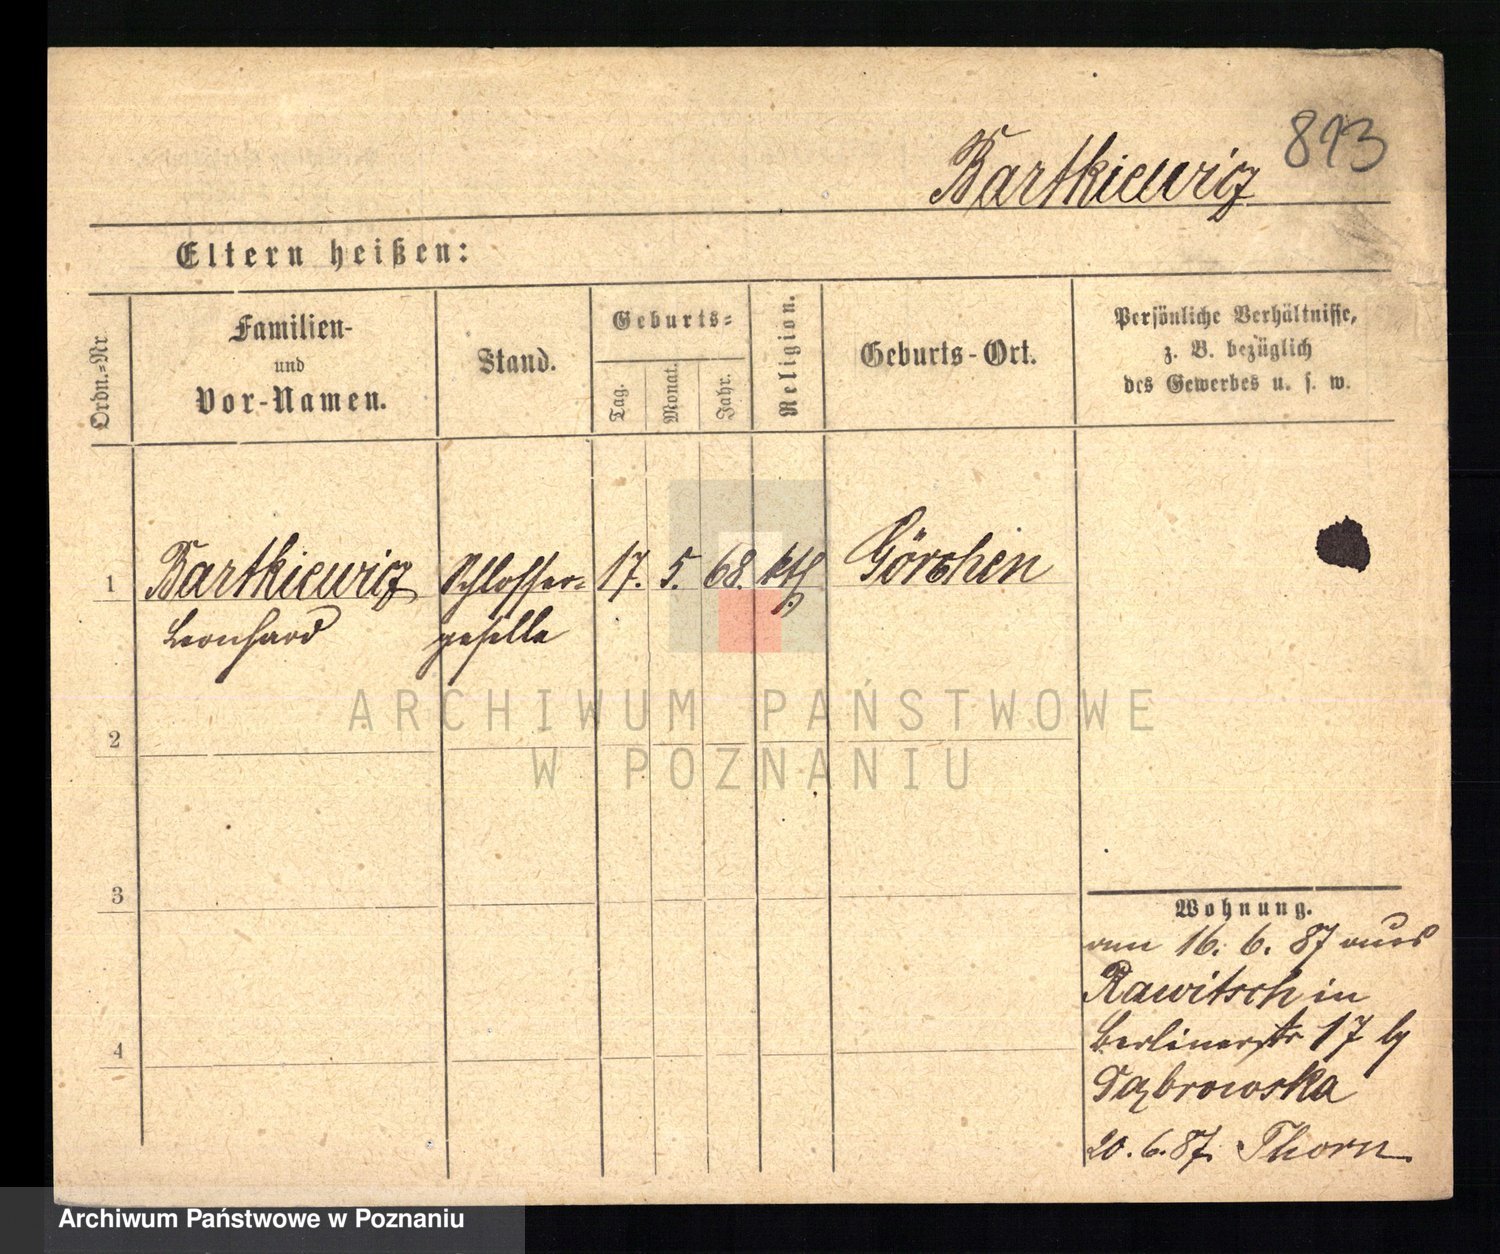 893
Bartkiewicz
Eltern heißen:
Ordn.-Nr.
Familien-
und
Vor-Namen.
Stand.
Geburts-
Tag.
Monat.
Jahr.
Religion.
Geburts-Ort.
Persönliche Verhältnisse,
z. B. bezüglich
des Gewerbes u. s. w.
1 Bartkiewicz Schlosser- 17. 5. 68. kth. Görchen
Leonhard geselle
2
3
4
Wohnung.
am 16. 6. 87 aus
Rawitsch in
Berlinerstr 17 bei
Dąbrowska
20. 6. 87. Thorn
ARCHIWUM PAŃSTWOWE
W POZNANIU
Archiwum Państwowe w Poznaniu